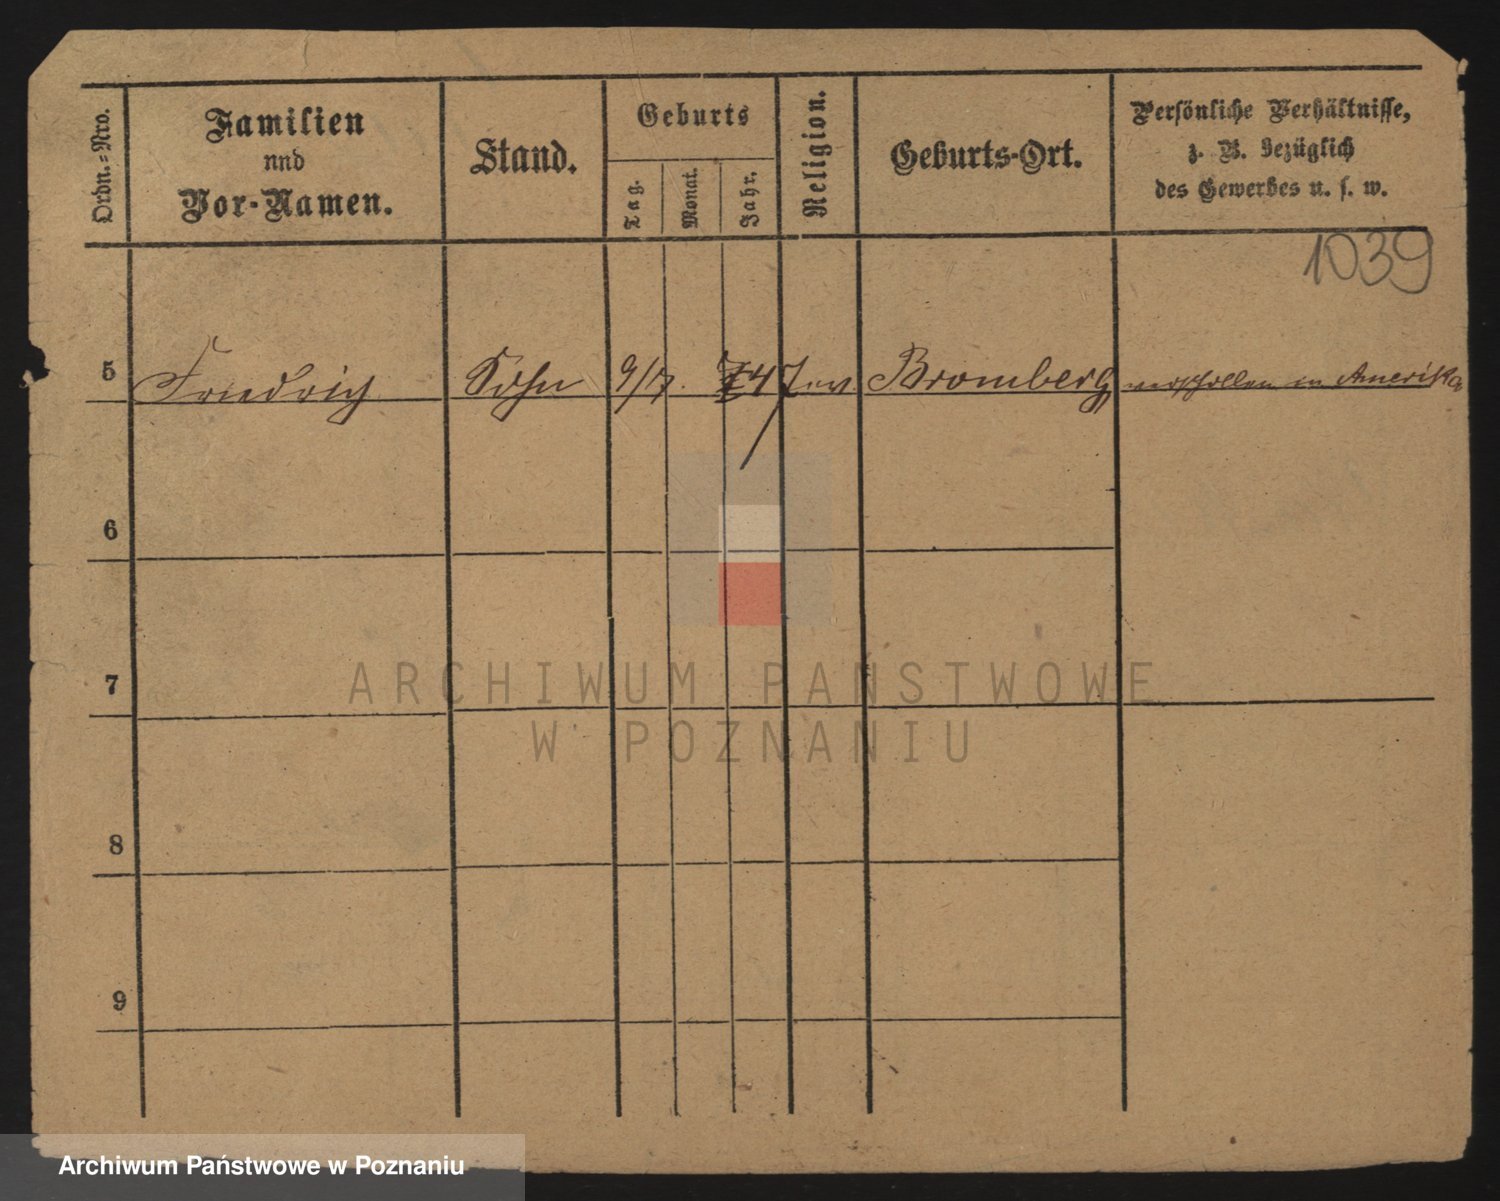 Ordn.=Nro.
Familien
und
Vor-Namen.
Stand.
Geburts
Tag.
Monat.
Jahr.
Religion.
Geburts-Ort.
Persönliche Verhältnisse,
z. B. bezüglich
des Gewerbes u. s. w.
1039
5 Friedrich Sohn 9/7. 47 ev. Bromberg verschollen in Amerika
6
7
8
9
ARCHIWUM PAŃSTWOWE
W POZNANIU
Archiwum Państwowe w Poznaniu